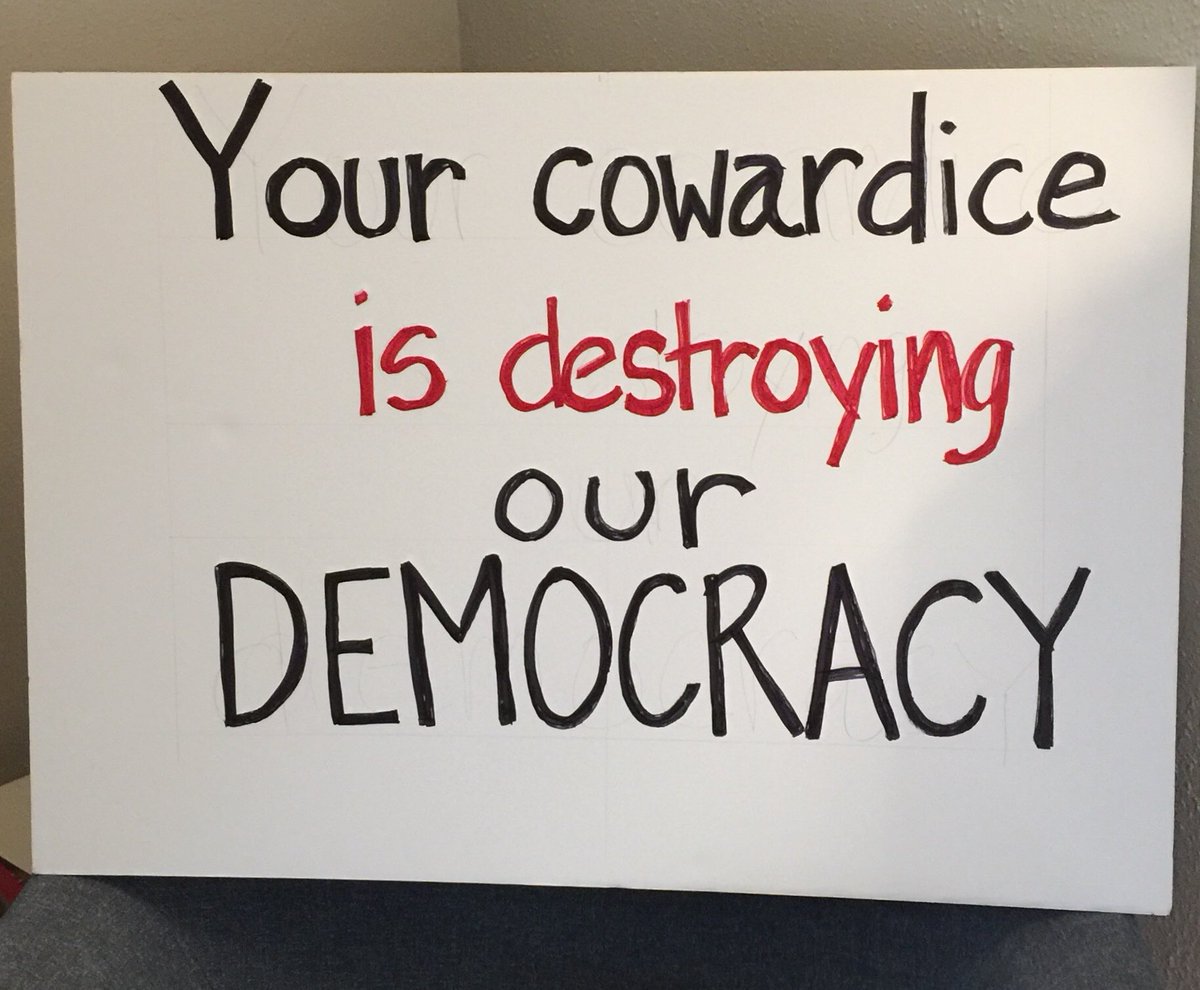 Your cowardice
is destroying
our
DEMOCRACY